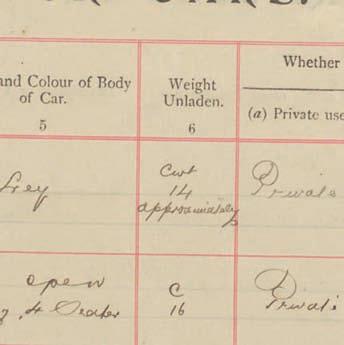 and Colour of Body
of Car.
5
Weight
Unladen.
6
Whether
(a) Private use
Grey
Cwt
14
approximately
Private
open
4 Seater
C
16
Private